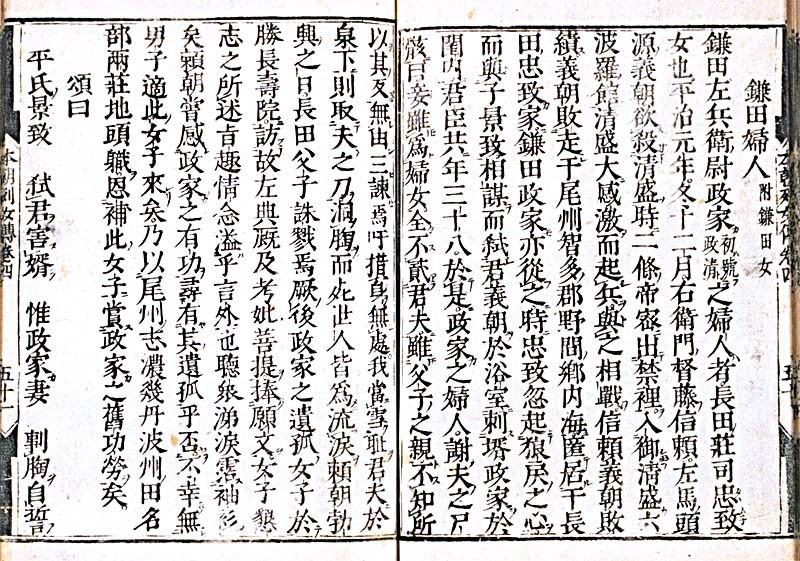 鎌田婦人 附鎌田女
鎌田左兵衛尉政家初號政清之婦人者長田莊司忠致
女也平治元年冬十二月右衛門督藤信頼左馬頭
源義朝欲殺清盛時二條帝密出禁裡入御清盛六
波羅館清盛大感激而起兵與之相戰信頼義朝敗
績義朝敗走于尾州智多郡野間郷内海匿居于長
田忠致家鎌田政家亦從之時忠致忽起狼戻之心
而與子景致相謀而弑君義朝於浴室刺壻政家於
閨内君臣共年三十八於是政家之婦人謝夫之尸
骸曰妾雖爲婦女全不貳君夫雖父子之親不知所
以其反無由三諫焉吁措身無處我當雪耻君夫於
泉下則取夫之刀洞胸而死世人皆爲流涙頼朝勃
興之日長田父子誅戮焉厥後政家之遺孤女子於
勝長壽院訪故左典厩及考妣菩提捧願文女子懇
志之所述旨趣情念溢乎言外也聽衆涕涙霑袖衫
矣頼朝嘗感政家之有功尋有其遺孤乎否不幸無
男子適此女子來矣乃以尾州志濃幾丹波州田名
部兩莊地頭職恩補此女子賞政家之舊功勞矣
頌曰
平氏景致 弑君害婿 惟政家妻 刲胸自誓
本朝列女傳卷四
五十一